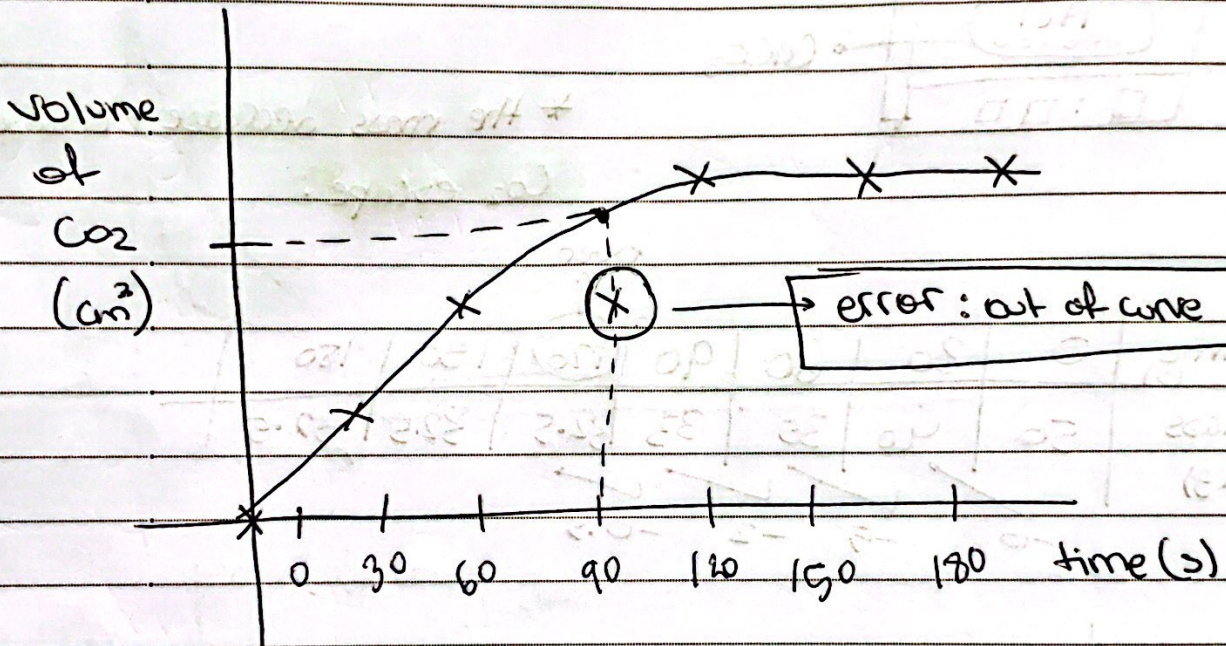 volume
of
CO2
(cm³)
error : out of curve
0 30 60 90 120 150 180 time (s)